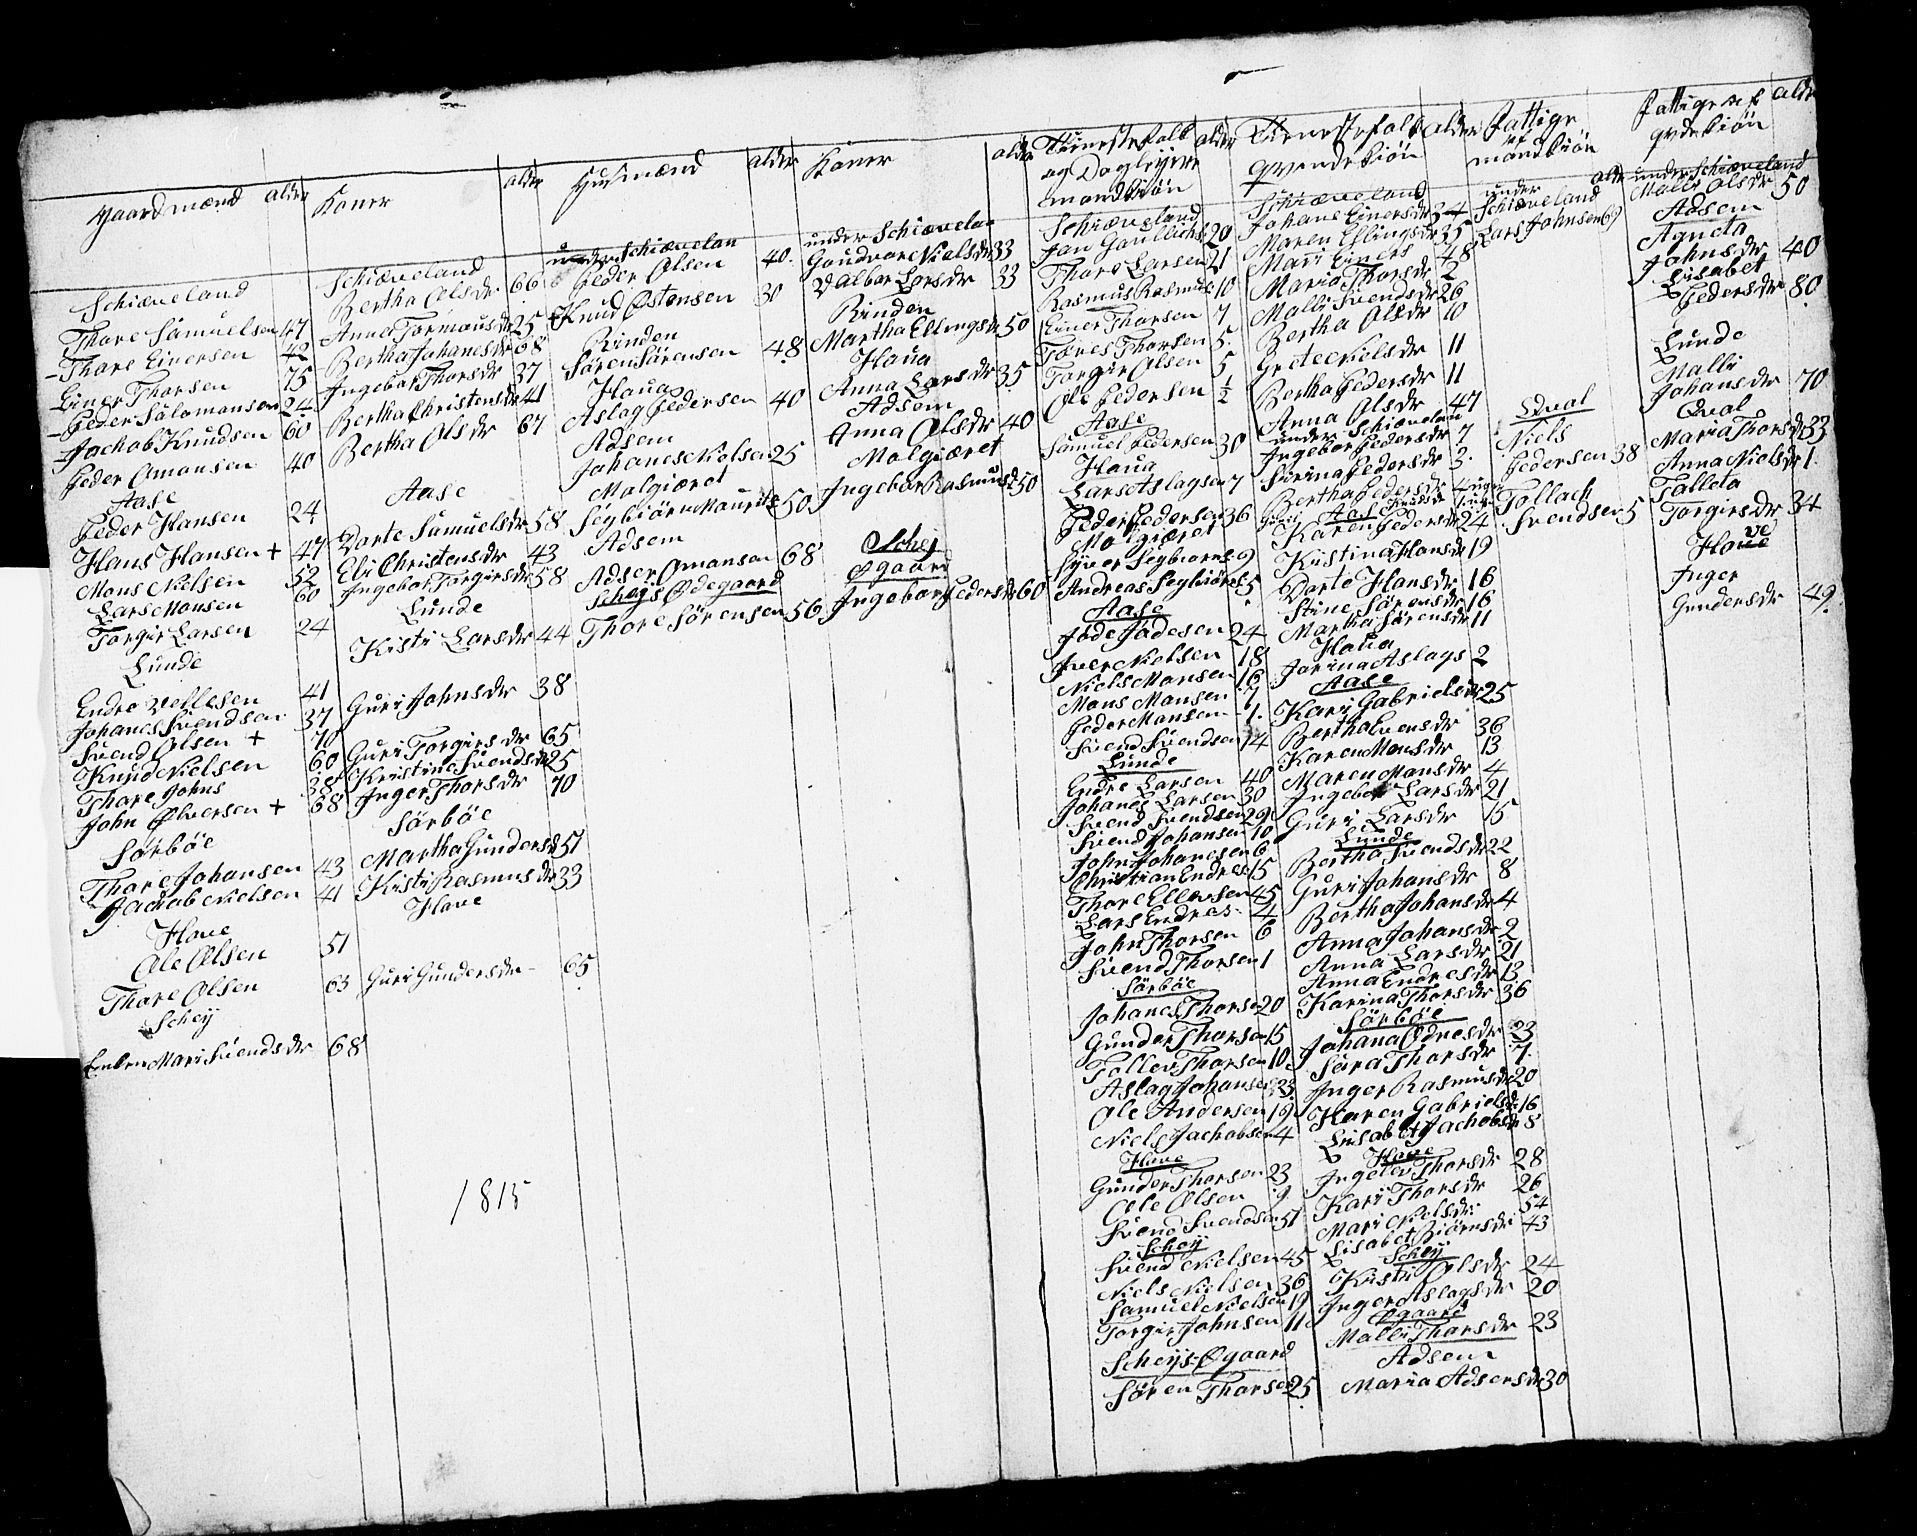 Gaardmænd alder
Koner
alder
Huusmænd
alder
Koner
alder
Tienestefolk
og Dagleyere
mandkiøn
alder
Tienestefolk
qvendekiøn
alder
Fattige
af
mandkiøn
alder
Fattige af
qvdekiøn
alder
Schiæveland
Thore Samuelsen 47
- Thore Einersen 42
Einer Thorsen 75
- Peder Salomonsen 24
Jachob Knudsen 60
Peder Omonsen 40
Aase
Peder Hansen 24
Hans Hansen + 47
Mons Nielsen 52
Lars Monsen 60
Torgir Larsen 24
Lunde
Endre 41
Johanes Svendsen 37
Svend Olsen + 70
Knud Nielsen 60
Thore Johns 38
John Ølversen + 68
Sørbøe
Thore Johansen 43
Jachob Nielsen 41
Hove
Ole Olsen 51
Thore Olsen 63
Schey
Enken Mari Svendsdr 68
Schiæveland
Bertha Olsdr 66
Anna Tormousdr 25
Bertha Johanesdr 68
Ingebor Thorsdr 37
Bertha Christensdr 41
Bertha Olsdr 67
Aase
Dorte Samuelsdr 58
Eli Christensdr 43
Ingebor Torgirsdr 58
Lunde
Kisti Larsdr 44
Guri Johnsdr 38
Guri Torgirsdr 65
Kristine Svendsdr 25
Inger Thorsdr 70
Sørbøe
Martha Gundersdr 57
Kisti Rasmusdr 33
Hove
Guri Gundersdr - 65
under Schiævelan
Peder Olsen 40
Knud Østensen 30
Rinden
Søren Sørensen 48
Haua
Aslag Pedersen 40
Adsem
Johanes Nielsen 25
Malgiæret
Seybiørn Mauritz 50
Adsem
Adser Omonsen 68
Scheys Ødegaard
Thore Sørensen 56
under Schiævelan
Goudvor Nielsdr 33
Valbor Larsdr 33
Rinden
Martha Ellingsdr 50
Haua
Anna Larsdr 35
Adsem
Anna Olsdr 40
Malgiæret
Ingebor Rasmusdr 50
Schey
Øgaard
Ingebor Pedersdr 60
Schiæveland
Jan Goullichs 20
Thore Larsen 21
Rasmus Rasmus 10
Einer Thorsen 7
Tøres Thorsen 5
Torgir Olsen 5
Ole Pedersen ½
Aase
Samuel Pedersen 30
Haua
Lars Aslagsen 7
Peder Pedersen 36
Malgiæret
Syver Segbiørns 9
Andreas Segbiørns 5
Aase
Jode Jodesen 24
Iver Nielsen 18
Niels Monsen 16
Mons Monsen 7
Peder Monsen 1
Svend Svendsen 14
Lunde
Endre Larsen 40
Johanes Larsen 30
Svend Svendsen 29
Svend Johansen 10
John Johanesen 6
Christian Endres 15
Thore Ellevsen 45
Lars Endres 4
John Thorsen 6
Svend Thorsen 1
Sørbøe
Johanes Thorse 20
Gunder Thorsen 15
Tollev Thorsen 10
Aslag Johanse 23
Ole Andersen 19
Niels Jachobsen 4
Hove
Gunder Thorsen 23
Ole Olsen 9
Svend Svendsen 51
Schey
Svend Nielsen 45
Niels Nielsen 36
Samuel Nielsen 19
Torgir Johnsen 11
Scheys Øgaard
Søren Thorsen 25
Schiæveland
Johane Einersdr 34
Maren Eslingsdr 35
Mari Einers 48
Maria Thorsdr 2
Malli Svendsdr 26
Bertha Olsdr 10
Grete Nielsdr 11
Bertha Pedersdr 11
Anna Olsdr 47
under Schiævelan
Ingebor Pedersdr 7
Sirina Pedersdr 3
Bertha Pedersdr
Aase
Karen Pedersdr 24
Kristina Hansdr 19
Dorte Hansdr 16
Stine Sørensdr 16
Martha Sørensdr 11
Haua
Jorina Aslags 2
Aase
Kari Gabrielsdr 25
Bertha Evensdr 36
Karen Monsdr 13
Maren Monsdr 4
Ingebor Larsdr 21
Guri Larsdr 15
Lunde
Bertha Svendsdr 22
Guri Johansdr 8
Bertha Johansdr 4
Anna Johansdr 2
Anna Larsdr 21
Anna Endresdr 13
Karina Thorsdr 36
Sørbøe
Johana Odnesdr 23
Sara Thorsdr 7
Inger Rasmusdr 20
Karen Gabrielsdr 16
Lisabet Jachobsdr 8
Hove
Ingelev Thorsdr 28
Kari Thorsdr 26
Mari Nielsdr 54
Lisabet Biørnsdr 43
Schey
Kisti Olsdr 24
Inger Aslagsdr 20
Øgaard
Malli Thorsdr 23
Adsem
Maria Adsersdr 30
under
Schiæveland
Lars Johnsen 69
Qval
Niels
Pedersen 38
Tollach
Svendsen 5
under Schiæveland
Malli Olsdr 50
Adsem
Agneta
Johnsdr 40
Lisabet
Pedersdr 80
Lunde
Malli
Johansdr 70
Qval
Maria Thorsdr 33
Anna Nielsdr 1
Talleta
Torgirsdr 34
Hove
Inger
Gundersdr 49
1815